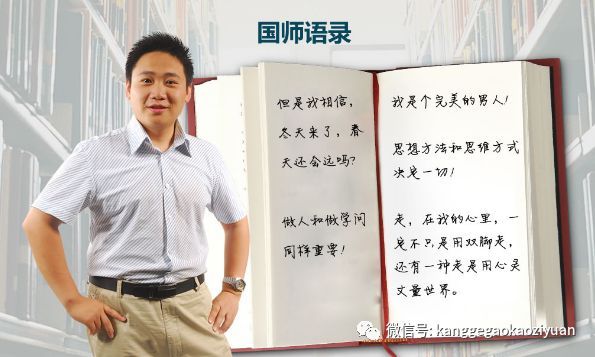 国师语录
但是我相信，
冬天来了，春
天还会远吗？
做人和做学问
同样重要！
我是个完美的男人！
思想方法和思维方式
决定一切！
走，在我的心里，一
定不只是用双脚走，
还有一种走是用心灵
丈量世界。
微信号: kanggegaokaoziyuan